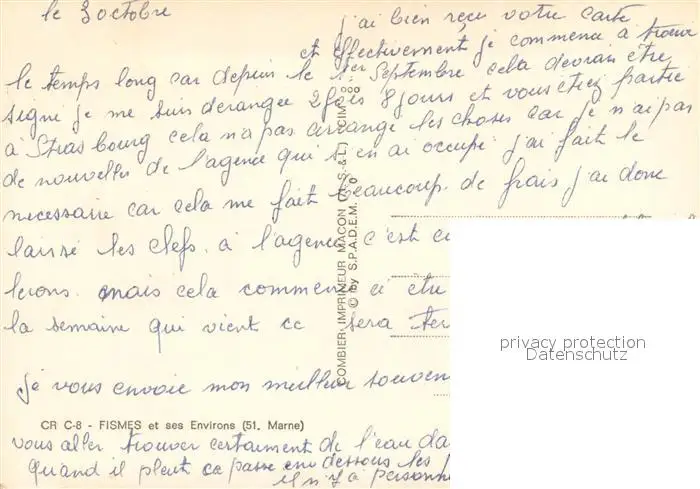 le 3 octobre
j'ai bien reçu votre carte
et effectivement je commence à trouver
le temps long car depuis le 1er Septembre cela devrait être
signé je me suis derangée 2 fois 8 jours et vous étiez partie
à Strasbourg cela n'a pas arrangé les choses car je n'ai pas
de nouvelles de l'agence qui s'en ai occupé j'ai fait le
necessaire car cela me fait beaucoup de frais j'ai donc
laissé les clefs à l'agence c'est
lerons. mais cela commence ci être
la semaine qui vient ce sera ter
je vous envoie mon meilleur souven
CR C-8 - FISMES et ses Environs (51. Marne)
vous aller trouver certaiment de l'eau da
quand il pleut ca passe en dessous les
il n'y a personne
COMBIER IMPRIMEUR MACON (S.-&-L.) "CIM"
© by S.P.A.D.E.M.
privacy protection
Datenschutz